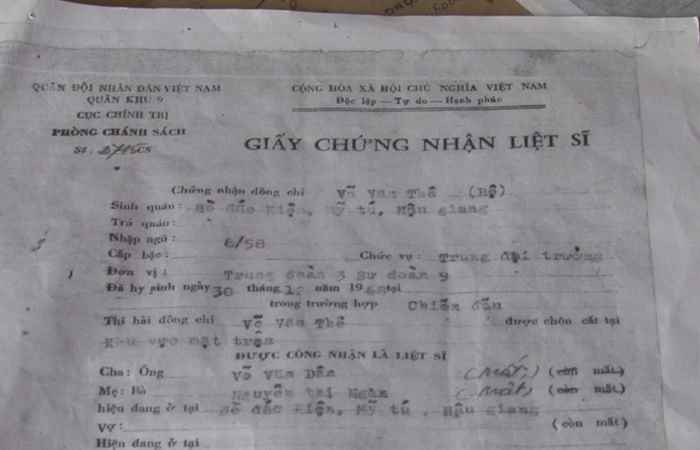 QUÂN ĐỘI NHÂN DÂN VIỆT NAM
QUÂN KHU 9
CỤC CHÍNH TRỊ
PHÒNG CHÁNH SÁCH
Số: CS
CỘNG HÒA XÃ HỘI CHỦ NGHĨA VIỆT NAM
Độc lập — Tự do — Hạnh phúc
GIẤY CHỨNG NHẬN LIỆT SĨ
Chứng nhận đồng chí Võ Văn Thê (Bộ)
Sinh quán: Hồ đắc Kiện, Mỹ tú, Hậu giang
Trú quán:
Nhập ngũ: 6/58
Cấp bậc: Chức vụ: Trung đội trưởng
Đơn vị: Trung đoàn 3 Sư đoàn 9
Đã hy sinh ngày 30 tháng năm 19 tại
trong trường hợp Chiến đấu
Thi hài đồng chí Võ Văn Thê được chôn cất tại
khu vực mặt trận
ĐƯỢC CÔNG NHẬN LÀ LIỆT SĨ
Cha: Ông Võ Văn Dần (mất) (còn mất)
Mẹ: Bà Nguyễn thị Ngàn (mất) (còn mất)
hiện đang ở tại Hồ đắc Kiện, Mỹ tú, Hậu giang
Vợ: (còn mất)
Hiện đang ở tại